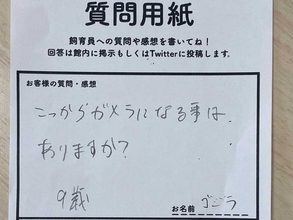 質問用紙
飼育員への質問や感想を書いてね！
回答は館内に掲示もしくはTwitterに投稿します.
お客様の質問・感想
こっからガメラになる事は
ありますか？
9歳
お名前 ゴジラ